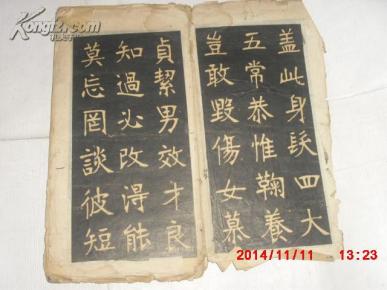 盖此身髮四大
五常恭惟鞠養
豈敢毀傷女慕
貞絜男效才良
知過必改得能
莫忘罔談彼短
KONGFZ.COM
2014/11/11 13:23